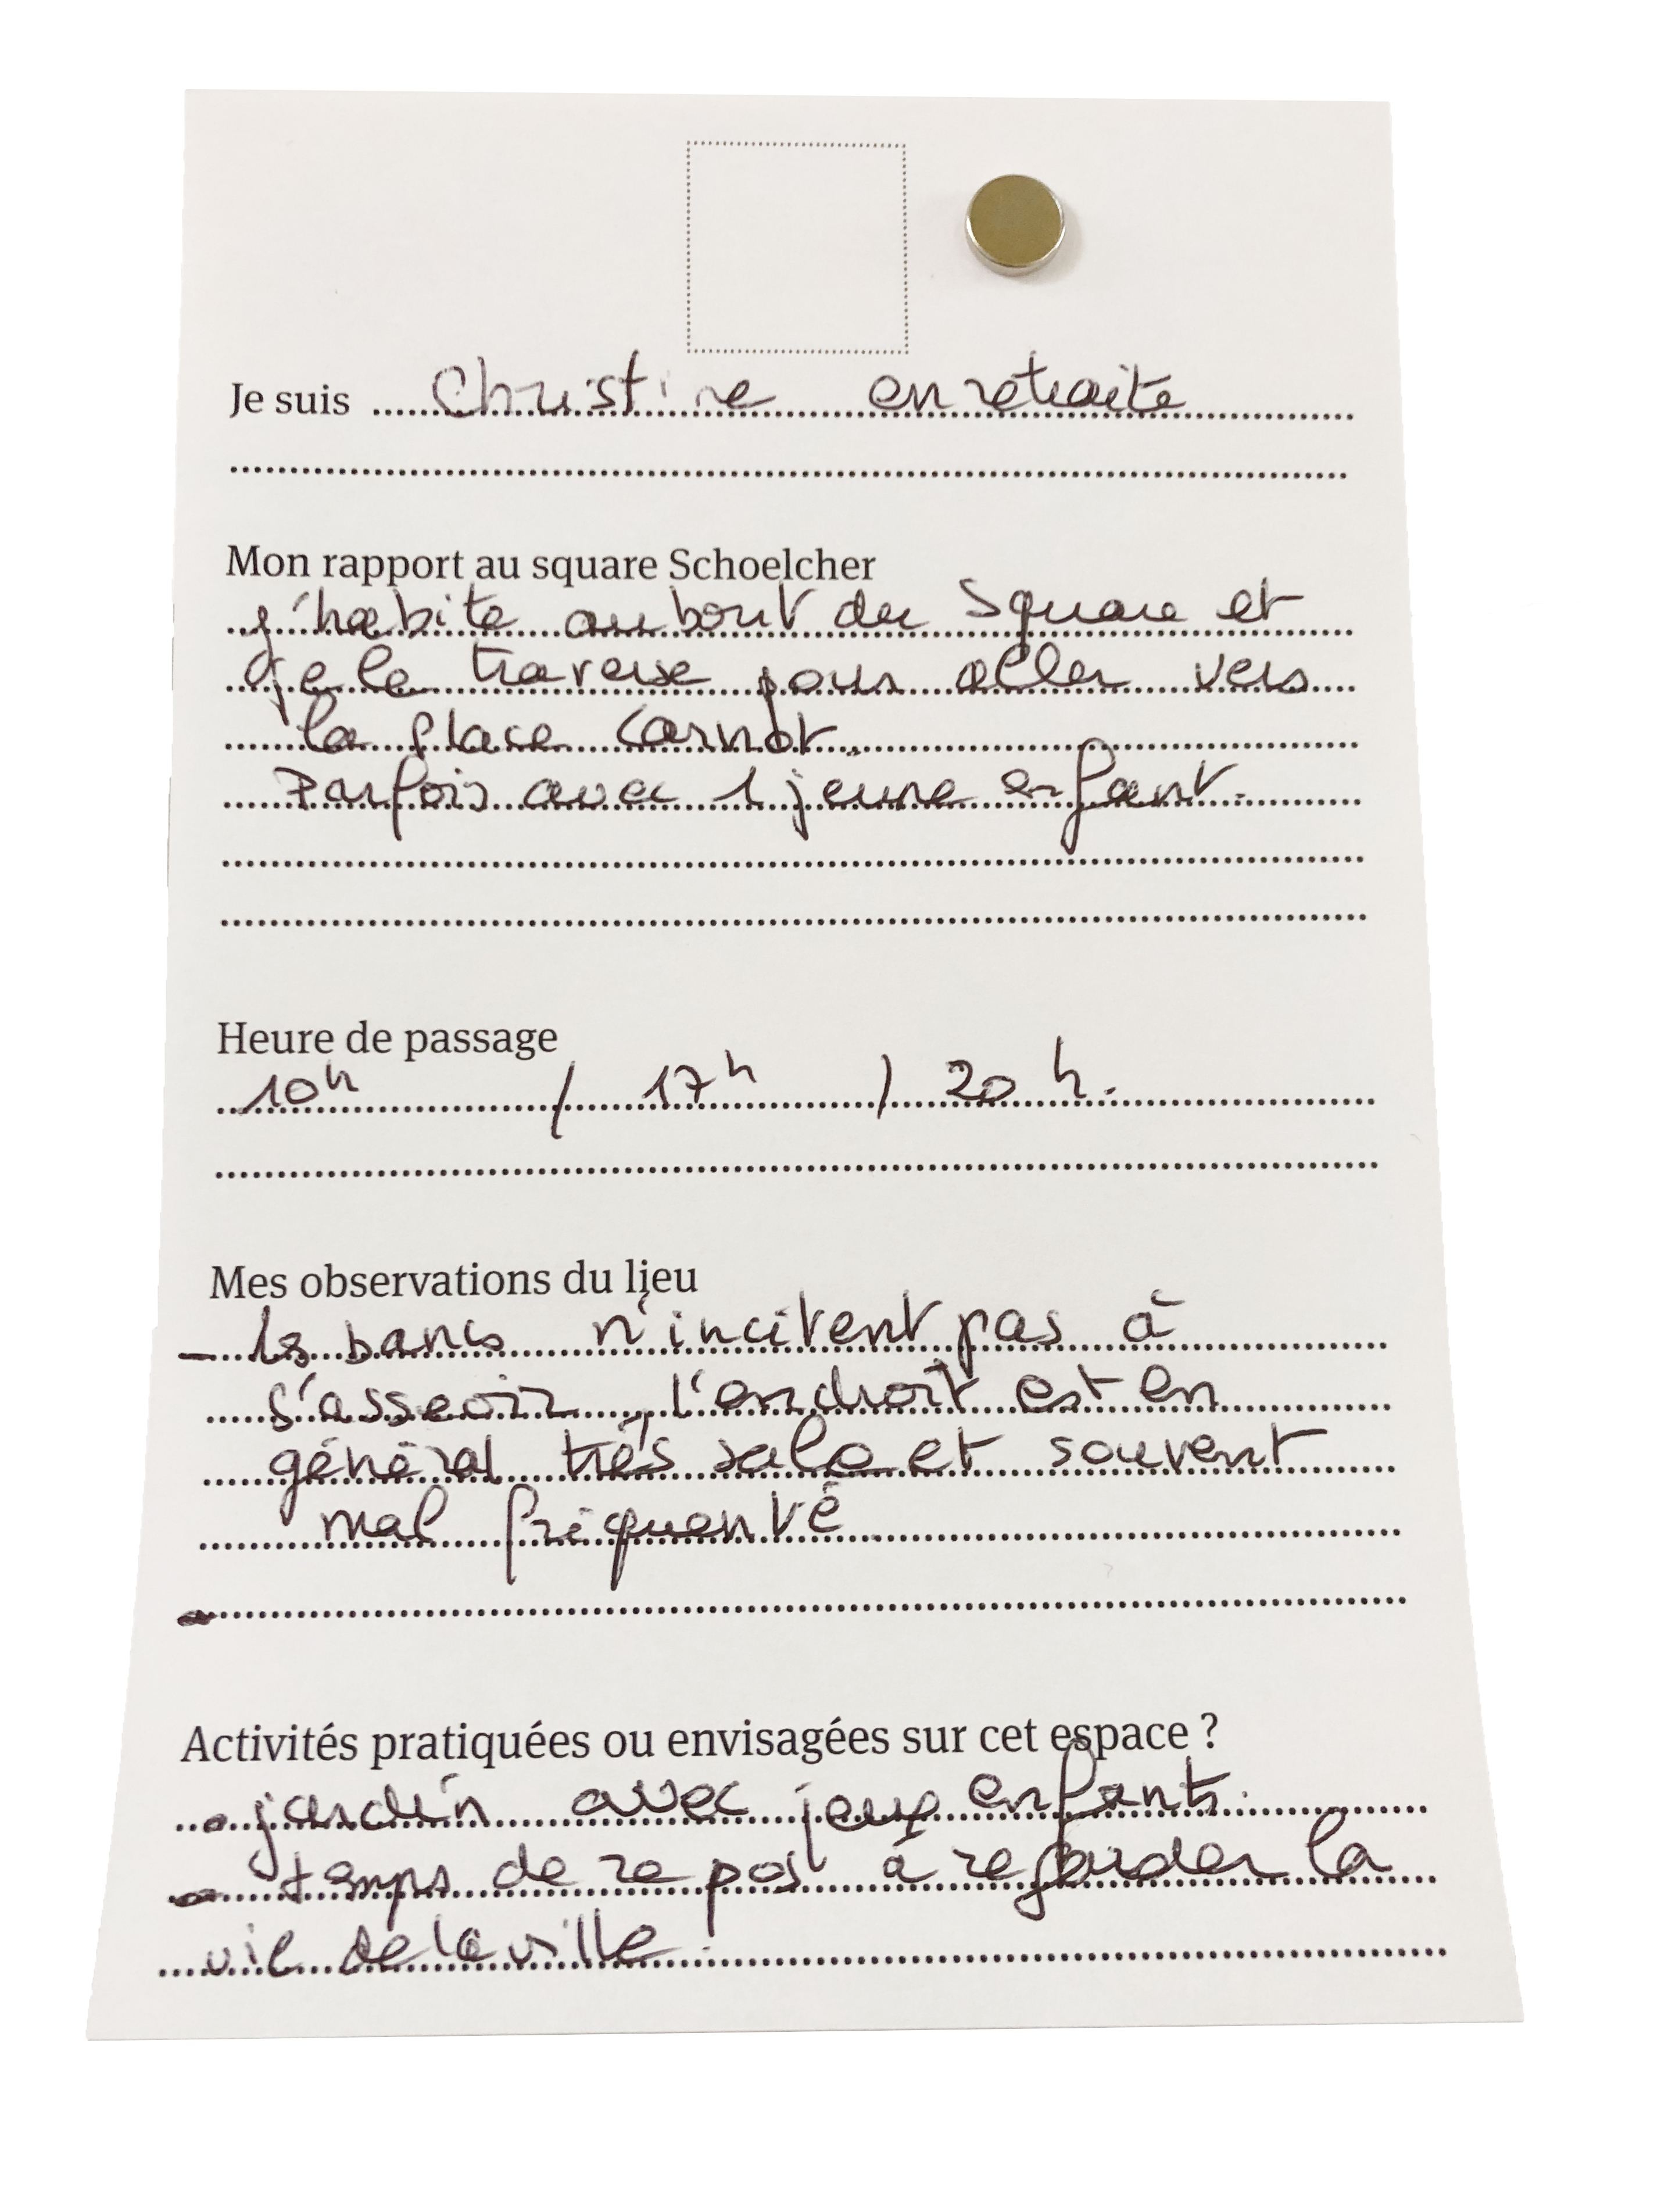 Je suis Christine en retraite
Mon rapport au square Schoelcher
j'habite au bout du square et
je le traverse pour aller vers
la place Carnot.
Parfois avec 1 jeune enfant.
Heure de passage
10h / 17h / 20h.
Mes observations du lieu
- les bancs n'incitent pas à
s'asseoir, l'endroit est en
général très sale et souvent
mal fréquenté
Activités pratiquées ou envisagées sur cet espace ?
- jardin avec jeux enfants.
- temps de repos à regarder la
vie de la ville.